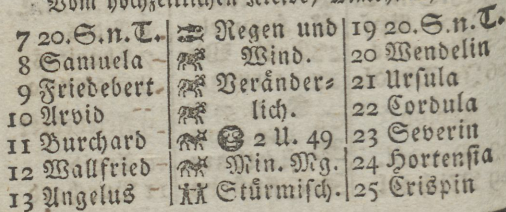 Vom hochzeitlichen Kleide,
7 20. S. n. T. Regen und 19 20. S. n. T.
8 Samuela Wind. 20 Wendelin
9 Friedebert Veränder= 21 Ursula
10 Arvid lich. 22 Cordula
11 Burchard 2 U. 49 23 Severin
12 Wallfried Min. Mg. 24 Hortensia
13 Angelus Stürmisch. 25 Crispin